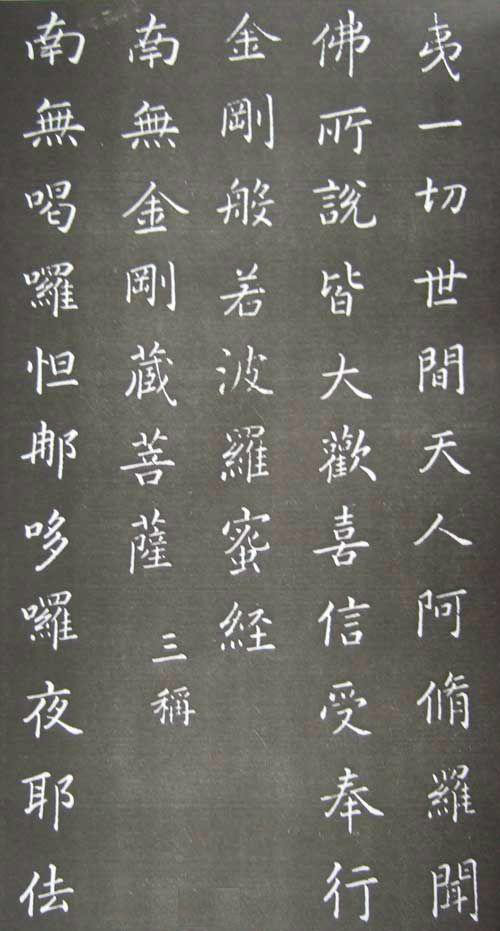 夷一切世間天人阿脩羅聞
佛所說皆大歡喜信受奉行
金剛般若波羅蜜経
南無金剛藏菩薩 三稱
南無喝囉怛那哆囉夜耶佉